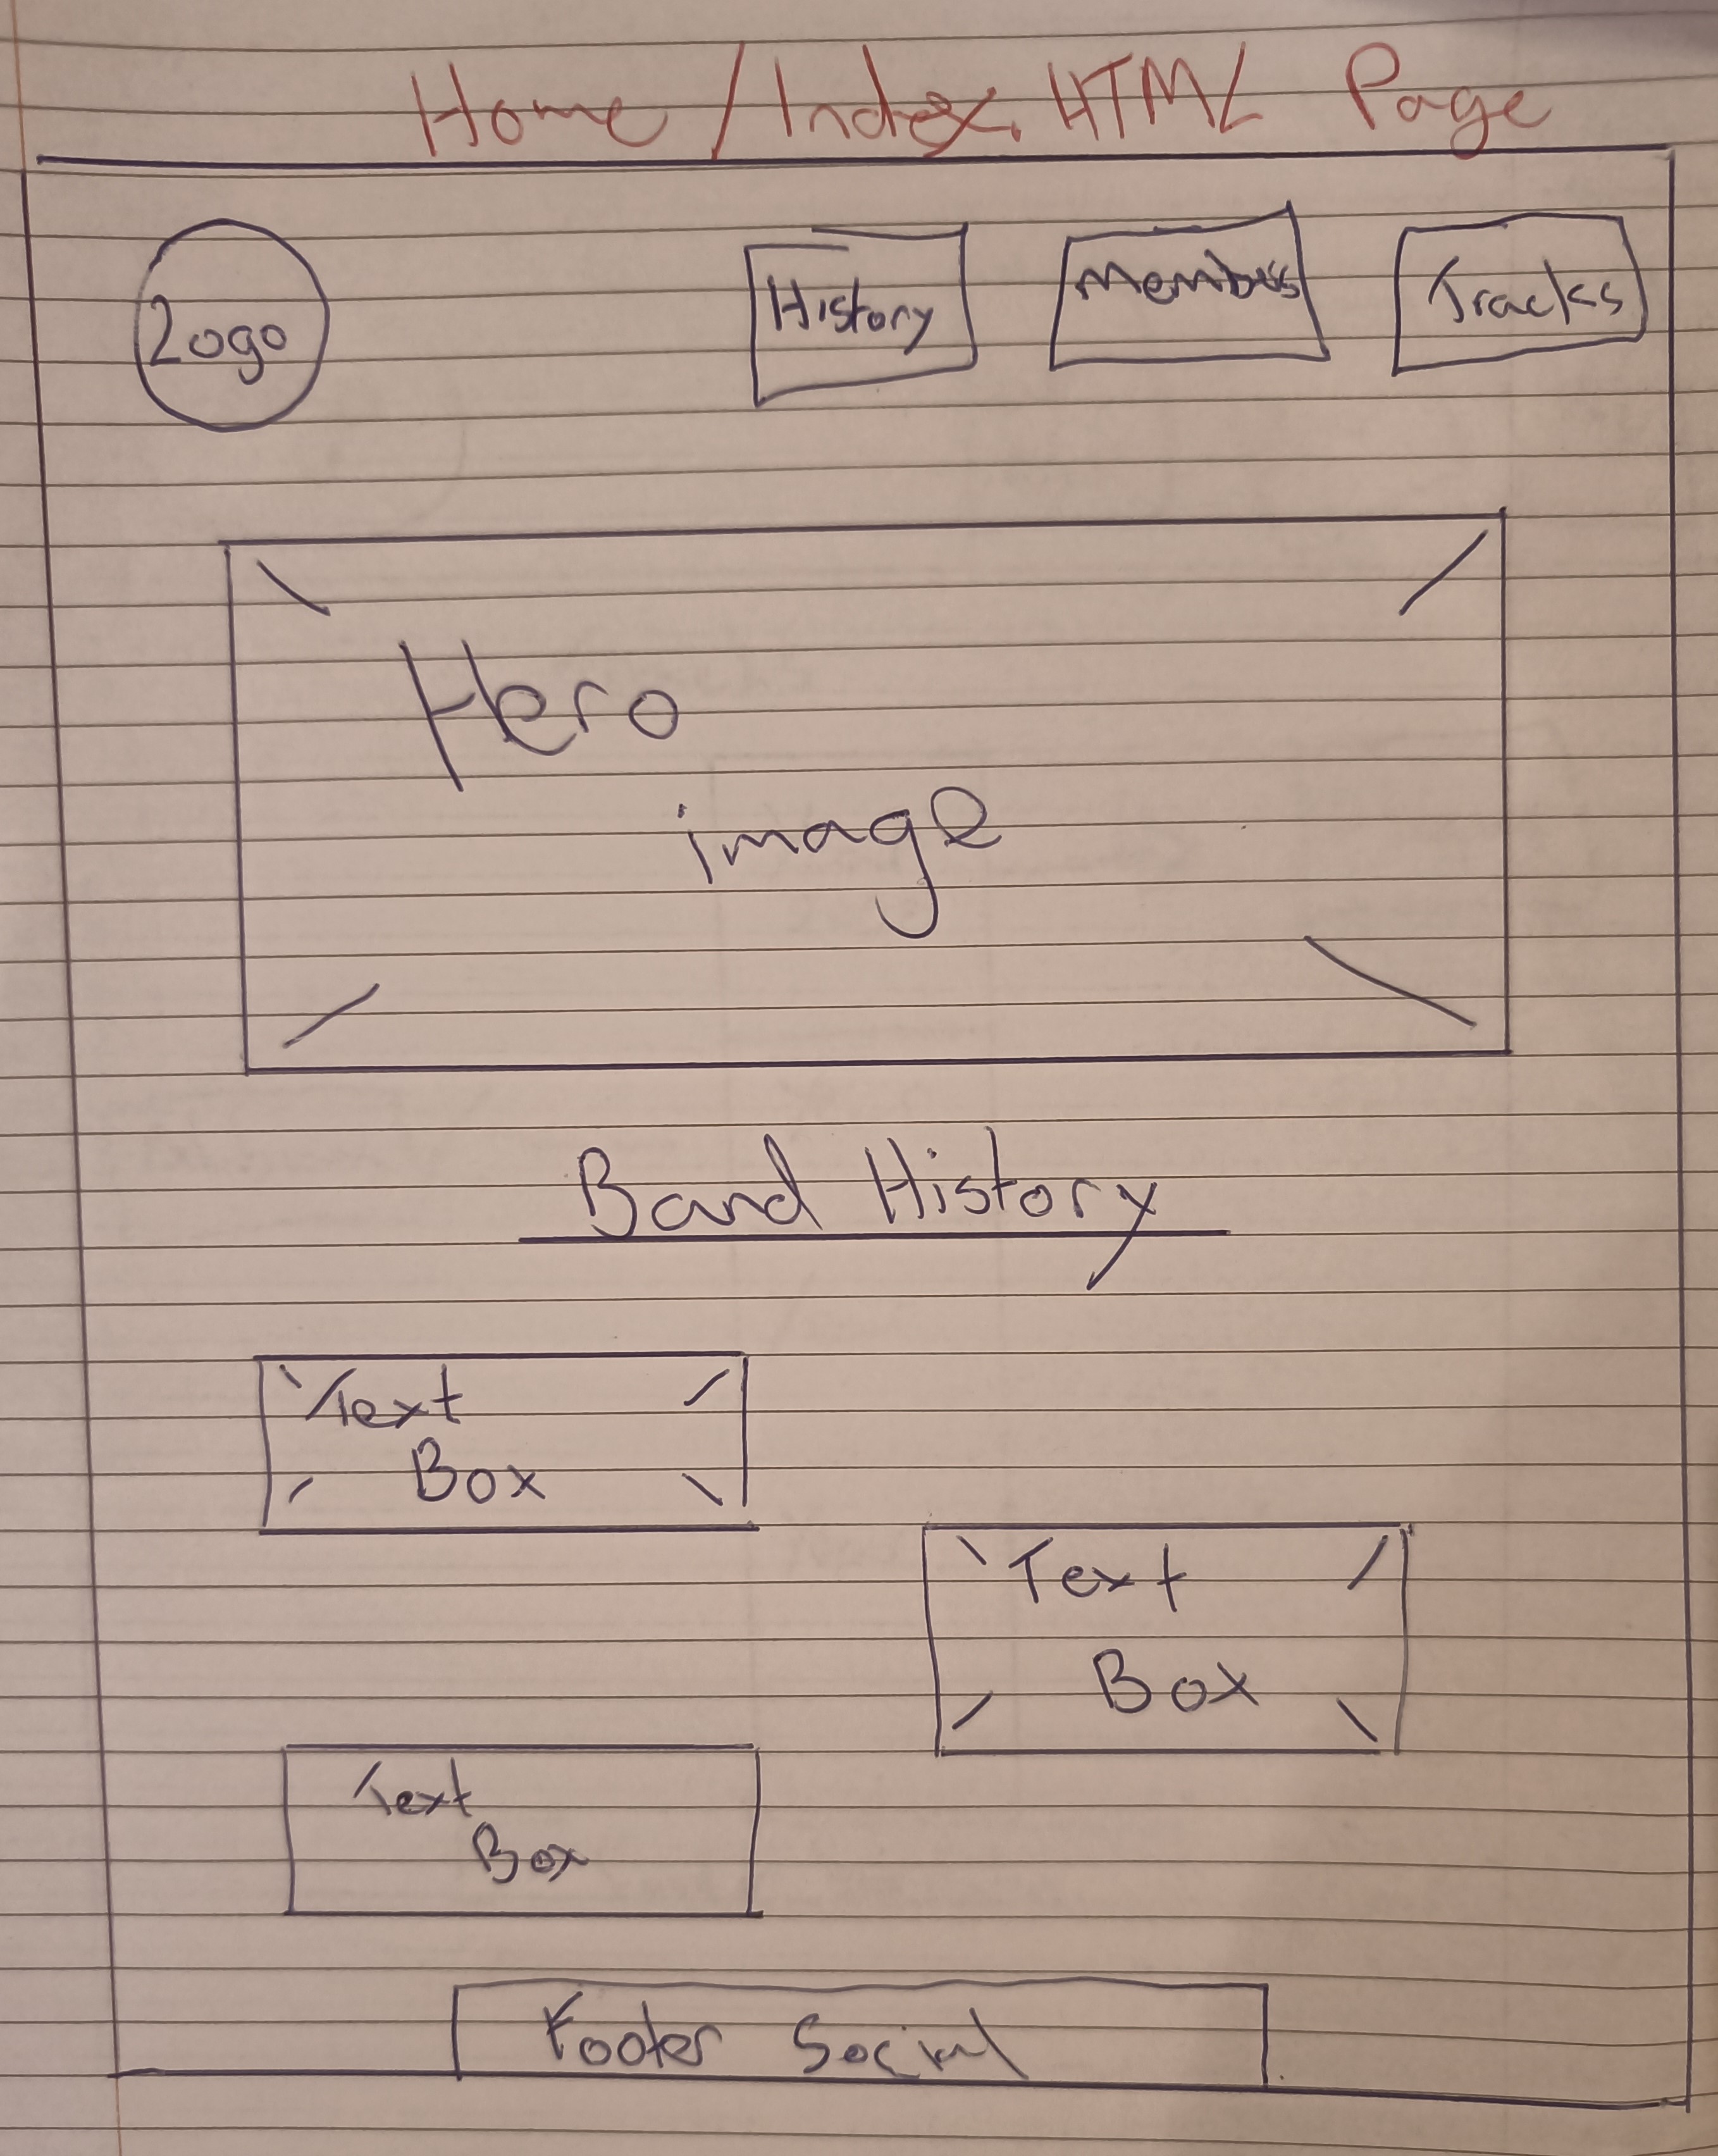 Home / Index. HTML Page
Logo
History
Members
Tracks
Hero
image
Band History
Text
Box
Text
Box
Text
Box
Footer Social